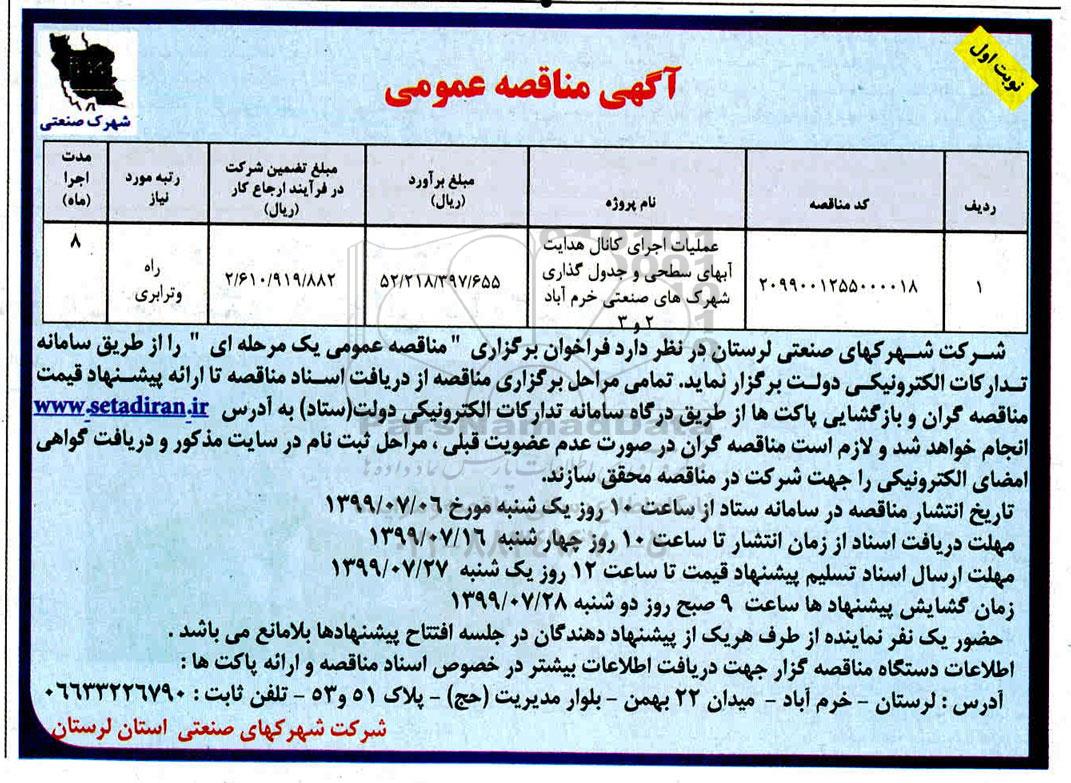 نوبت اول
شهرک صنعتی
آگهی مناقصه عمومی
ردیف | کد مناقصه | نام پروژه | مبلغ برآورد (ریال) | مبلغ تضمین شرکت در فرآیند ارجاع کار (ریال) | رتبه مورد نیاز | مدت اجرا (ماه)
۱ | ۲۰۹۹۰۰۱۲۵۵۰۰۰۰۱۸ | عملیات اجرای کانال هدایت آبهای سطحی و جدول گذاری شهرک های صنعتی خرم آباد ۲ و ۳ | ۵۲/۲۱۸/۳۹۷/۶۵۵ | ۲/۶۱۰/۹۱۹/۸۸۲ | راه وترابری | ۸
شرکت شهرکهای صنعتی لرستان در نظر دارد فراخوان برگزاری "مناقصه عمومی یک مرحله ای " را از طریق سامانه
تدارکات الکترونیکی دولت برگزار نماید. تمامی مراحل برگزاری مناقصه از دریافت اسناد مناقصه تا ارائه پیشنهاد قیمت
مناقصه گران و بازگشایی پاکت ها از طریق درگاه سامانه تدارکات الکترونیکی دولت(ستاد) به آدرس www.setadiran.ir
انجام خواهد شد و لازم است مناقصه گران در صورت عدم عضویت قبلی ، مراحل ثبت نام در سایت مذکور و دریافت گواهی
امضای الکترونیکی را جهت شرکت در مناقصه محقق سازند.
تاریخ انتشار مناقصه در سامانه ستاد از ساعت ۱۰ روز یک شنبه مورخ ۱۳۹۹/۰۷/۰۶
مهلت دریافت اسناد از زمان انتشار تا ساعت ۱۰ روز چهار شنبه ۱۳۹۹/۰۷/۱۶
مهلت ارسال اسناد تسلیم پیشنهاد قیمت تا ساعت ۱۲ روز یک شنبه ۱۳۹۹/۰۷/۲۷
زمان گشایش پیشنهاد ها ساعت ۹ صبح روز دو شنبه ۱۳۹۹/۰۷/۲۸
حضور یک نفر نماینده از طرف هریک از پیشنهاد دهندگان در جلسه افتتاح پیشنهادها بلامانع می باشد .
اطلاعات دستگاه مناقصه گزار جهت دریافت اطلاعات بیشتر در خصوص اسناد مناقصه و ارائه پاکت ها :
آدرس : لرستان - خرم آباد - میدان ۲۲ بهمن - بلوار مدیریت (حج) - پلاک ۵۱ و۵۳ - تلفن ثابت : ۰۶۶۳۳۲۲۶۷۹۰
شرکت شهرکهای صنعتی استان لرستان
ParsNamadData